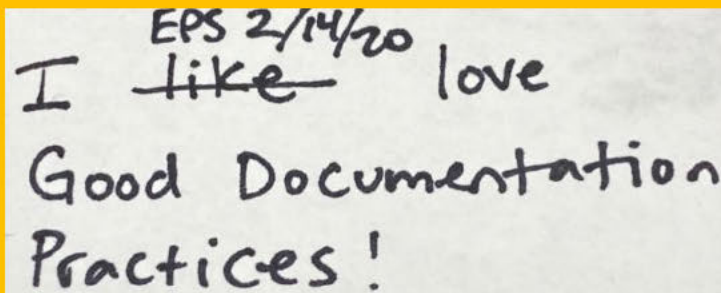 EPS 2/14/20
I like love
Good Documentation
Practices!